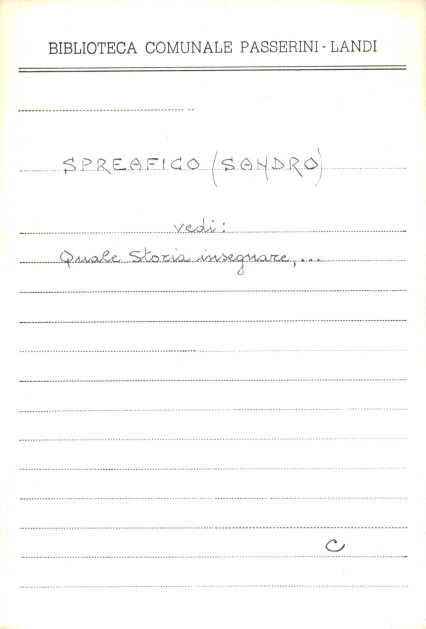 BIBLIOTECA COMUNALE PASSERINI - LANDI
SPREAFICO (SANDRO)
vedi:
Quale Storia insegnare,...
C